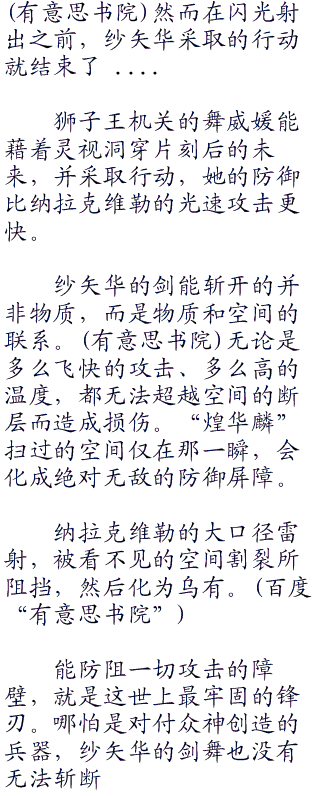 (有意思书院)然而在闪光射
出之前，纱矢华采取的行动
就结束了 ....
狮子王机关的舞威媛能
藉着灵视洞穿片刻后的未
来，并采取行动，她的防御
比纳拉克维勒的光速攻击更
快。
纱矢华的剑能斩开的并
非物质，而是物质和空间的
联系。(有意思书院)无论是
多么飞快的攻击、多么高的
温度，都无法超越空间的断
层而造成损伤。“煌华麟”
扫过的空间仅在那一瞬，会
化成绝对无敌的防御屏障。
纳拉克维勒的大口径雷
射，被看不见的空间割裂所
阻挡，然后化为乌有。(百度
“有意思书院”)
能防阻一切攻击的障
壁，就是这世上最牢固的锋
刃。哪怕是对付众神创造的
兵器，纱矢华的剑舞也没有
无法斩断